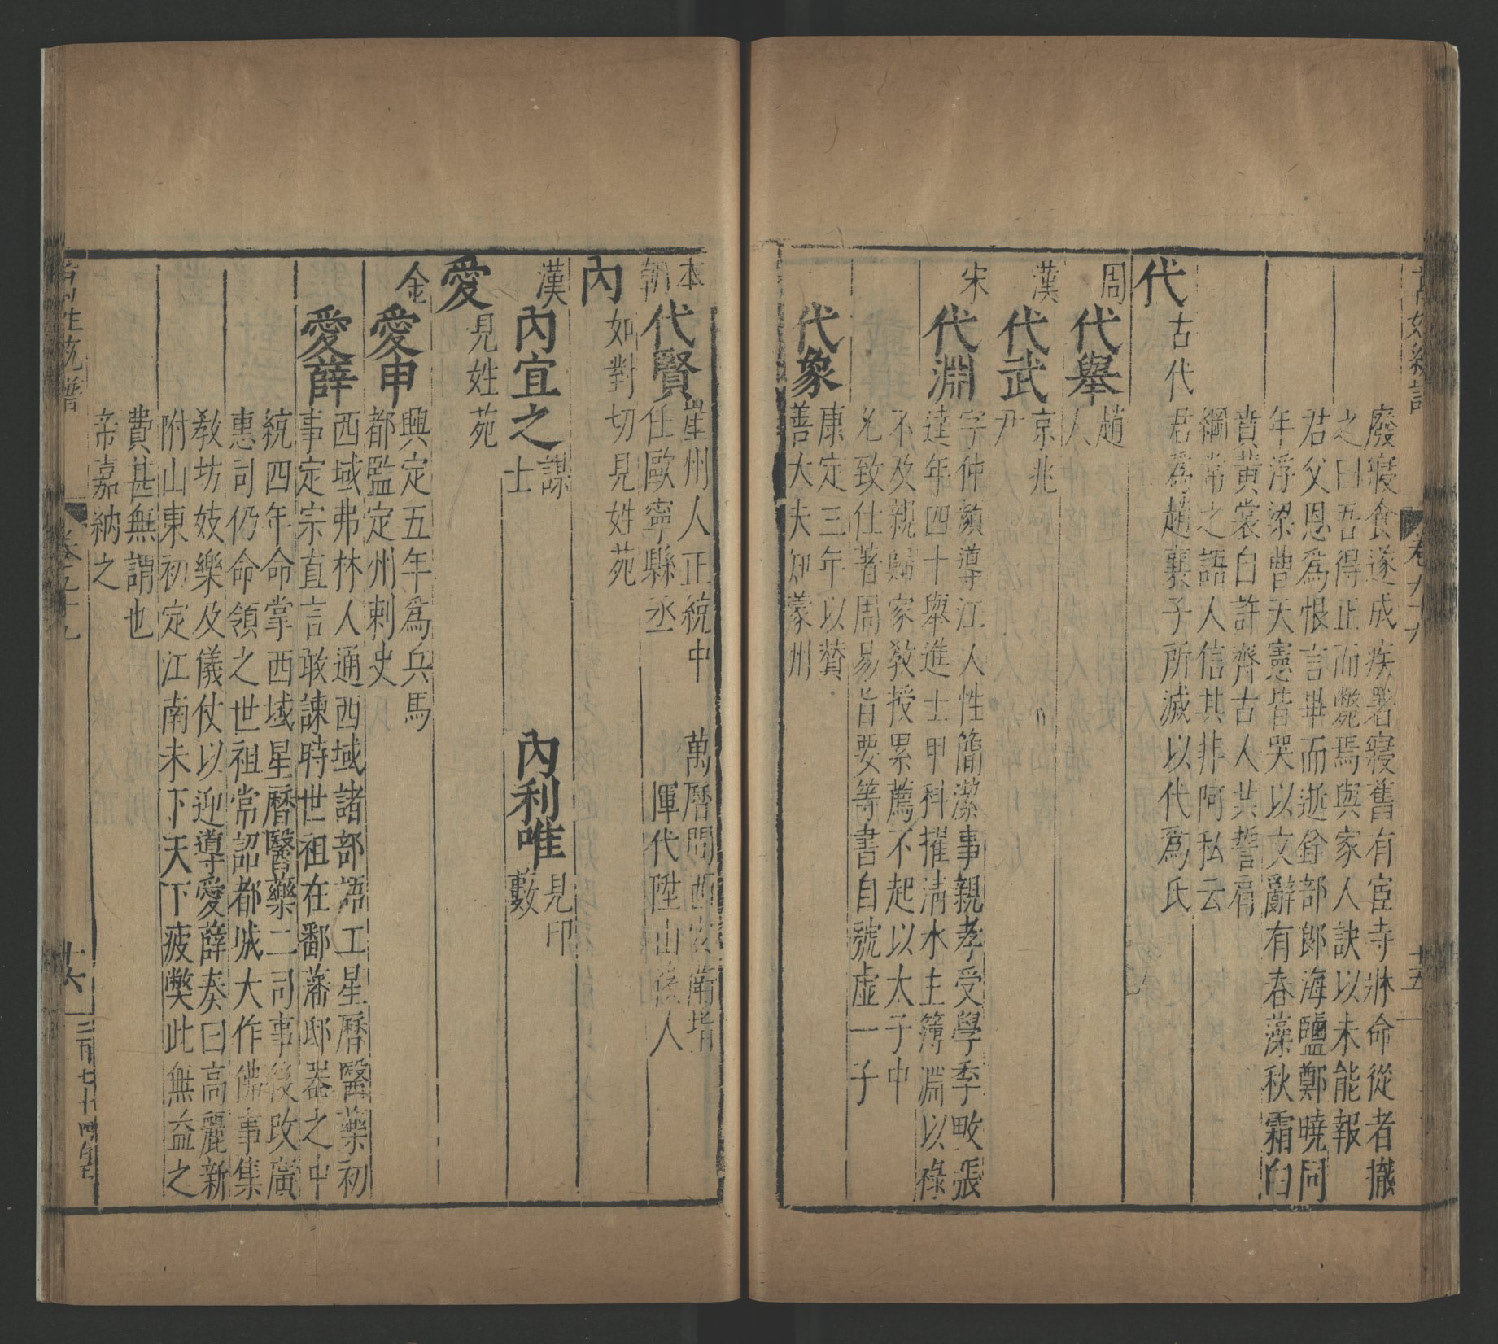 廢寢食遂成疾署寢舊有宦寺牀命從者撤
之曰吾得正而斃焉與家人訣以未能報
君父恩為恨言畢而逝銓部郎海鹽鄭曉同
年浮梁曹天憲皆哭以文辭有春藻秋霜白
賁黃裳自許齊古人共誓肩
綱常之語人信其非阿私云
代
古代
君為趙襄子所滅以代為氏
周
代舉
趙
人
漢
代武
京兆
尹
宋
代淵
字仲顏導江人性簡潔事親孝受學李畋張
達年四十舉進士甲科擢清水主簿淵以祿
不及親歸家教授累薦不起以太子中
允致仕著周易旨要等書自號虛一子
代象
康定三年以贊
善大夫知蒙州
卷九十九
十五
本
朝
代賢
崖州人正統中
任歐寧縣丞
萬曆間西
惲代陞山後人
內
如對切見姓苑
漢
內宜之
謀
士
內利唯
見印
藪
愛
見姓苑
金
愛申
興定五年為兵馬
都監定州刺史
愛薛
西域弗林人通西域諸部語工星曆醫藥初
事定宗直言敢諫時世祖在鄱藩邸器之中
統四年命掌西域星曆醫藥二司事後改廣
惠司仍命領之世祖常詔都城大作佛事集
教坊妓樂及儀仗以迎導愛薛奏曰高麗新
附山東初定江南未下天下疲獘此無益之
費甚無謂也
帝嘉納之
萬姓統譜
卷九十九
十六